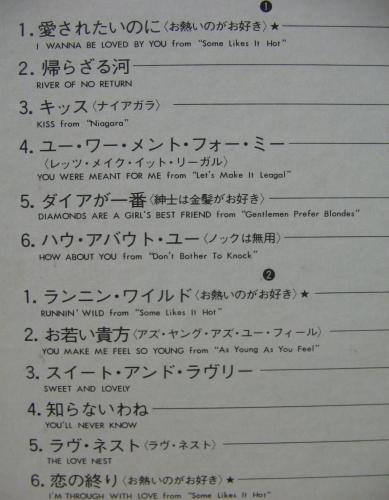 ❶
1. 愛されたいのに〈お熱いのがお好き〉★
I WANNA BE LOVED BY YOU from "Some Likes It Hot"
2. 帰らざる河
RIVER OF NO RETURN
3. キッス〈ナイアガラ〉
KISS from "Niagara"
4. ユー・ワー・メント・フォー・ミー
〈レッツ・メイク・イット・リーガル〉
YOU WERE MEANT FOR ME from "Let's Make It Leagal"
5. ダイアが一番〈紳士は金髪がお好き〉
DIAMONDS ARE A GIRL'S BEST FRIEND from "Gentlemen Prefer Blondes"
6. ハウ・アバウト・ユー〈ノックは無用〉
HOW ABOUT YOU from "Don't Bother To Knock"
❷
1. ランニン・ワイルド〈お熱いのがお好き〉★
RUNNIN' WILD from "Some Likes It Hot"
2. お若い貴方〈アズ・ヤング・アズ・ユー・フィール〉
YOU MAKE ME FEEL SO YOUNG from "As Young As You Feel"
3. スイート・アンド・ラヴリー
SWEET AND LOVELY
4. 知らないわね
YOU'LL NEVER KNOW
5. ラヴ・ネスト〈ラヴ・ネスト〉
THE LOVE NEST
6. 恋の終り〈お熱いのがお好き〉★
I'M THROUGH WITH LOVE from "Some Likes It Hot"